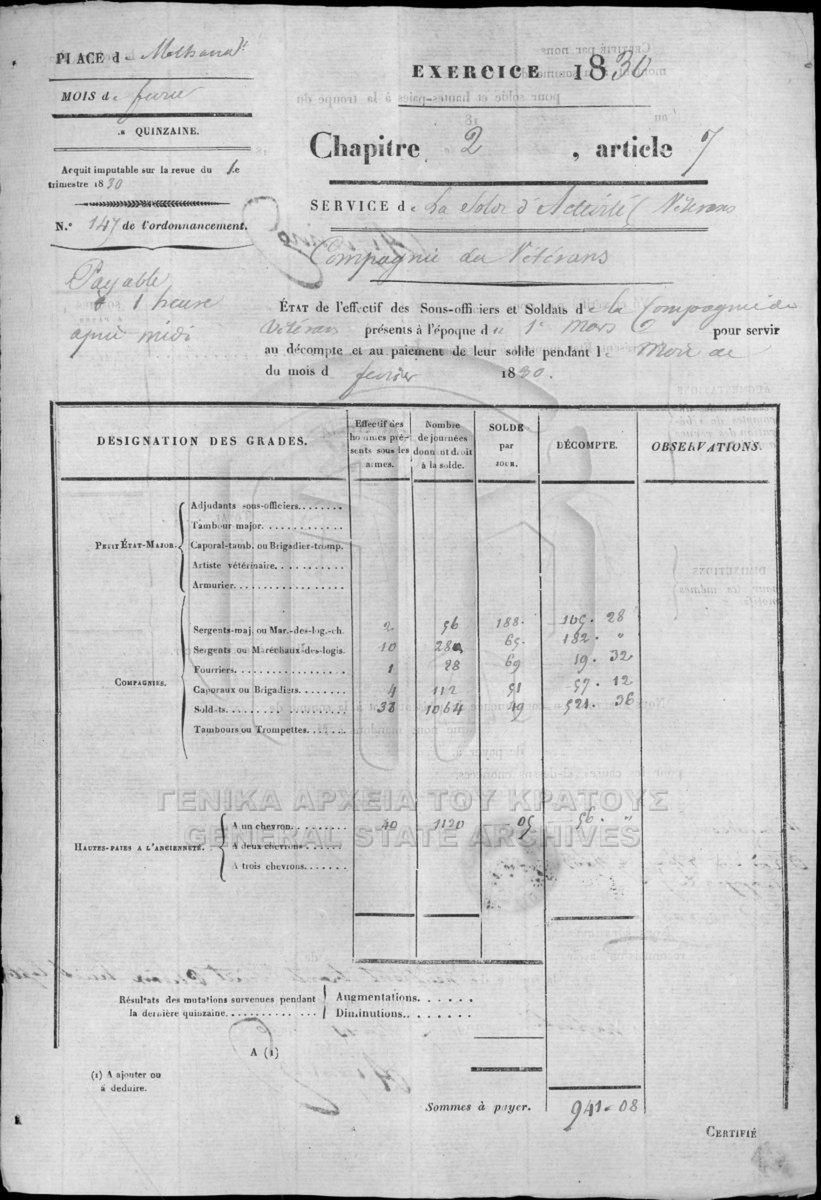 PLACE de Methana
EXERCICE 1830
MOIS de
e QUINZAINE.
Chapitre 2, article 7
Acquit imputable sur la revue du 1.e
trimestre 1830
SERVICE de La Solde d'Activité (Vétérans
N.o 147 de l'ordonnancement.
Compagnie de Vétérans
Payable
à 1 heure
après midi
ÉTAT de l'effectif des Sous-officiers et Soldats de la Compagnie de
Vétérans présents à l'époque du 1er Mars pour servir
au décompte et au paiement de leur solde pendant le Mois de
du mois d février 1830.
DESIGNATION DES GRADES.
Effectif des hommes présents sous les armes.
Nombre de journées donnant droit à la solde.
SOLDE par JOUR.
DÉCOMPTE.
OBSERVATIONS.
PETIT ÉTAT-MAJOR.
Adjudants sous-officiers........
Tambour major..............
Caporal-tamb. ou Brigadier-tromp.
Artiste vétérinaire............
Armurier..................
COMPAGNIES.
Sergents-maj. ou Mar.-des-log.-ch. 2 56 188. 105. 28
Sergents ou Maréchaux-des-logis. 10 280 65. 182. "
Fourriers.................. 1 28 69 19. 32
Caporaux ou Brigadiers........ 4 112 51 57. 12
Soldats.................... 38 1064 49 521. 36
Tambours ou Trompettes.......
HAUTES-PAIES A L'ANCIENNETÉ.
A un chevron........... 40 1120 05 56. "
A deux chevrons........
A trois chevrons........
ΓΕΝΙΚΑ ΑΡΧΕΙΑ ΤΟΥ ΚΡΑΤΟΥΣ
GENERAL STATE ARCHIVES
Résultats des mutations survenues pendant
la dernière quinzaine..............
Augmentations......
Diminutions........
A (1)
(1) A ajouter ou
à deduire.
Sommes à payer. 941.08
CERTIFIÉ